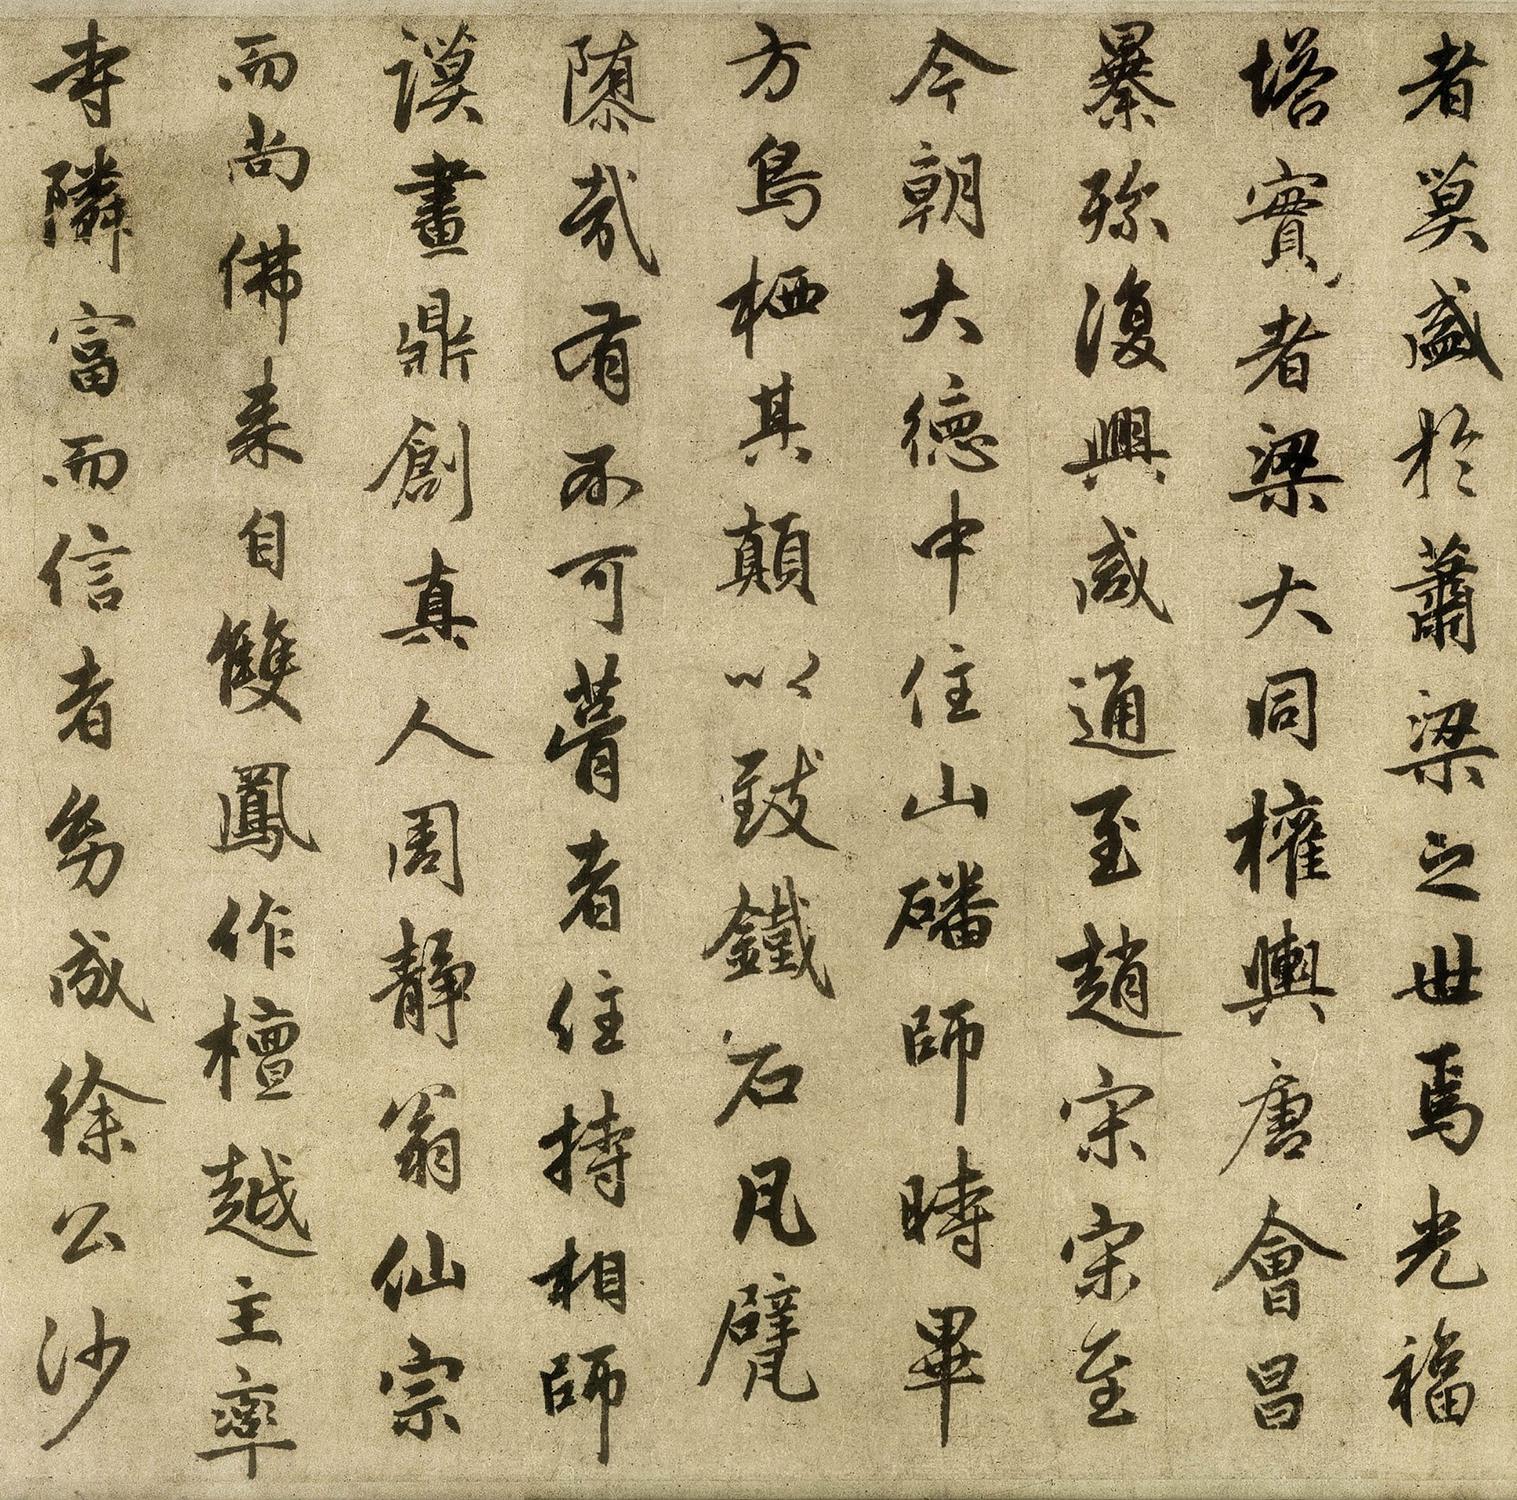 者莫盛於蕭梁之世焉光福
塔實者梁大同權輿唐會昌
毀殄復興咸通至趙宋宋至
今朝大德中住山磻師時畢
方鳥栖其顛以致鐵石凡甓
隳哉有不可菁者住持相師
謨畫鼎創真人周靜翁仙宗
而尚佛来自雙鳳作檀越主率
寺隣富而信者努成徐公沙